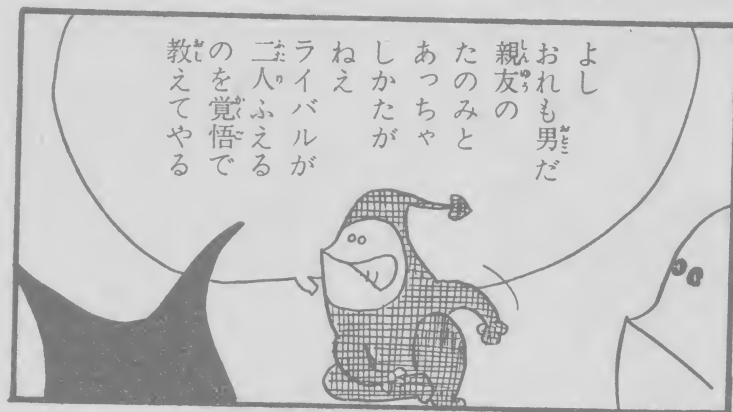 よし
おれも男だ
親友の
たのみと
あっちゃ
しかたが
ねえ
ライバルが
二人ふえる
のを覚悟で
教えてやる